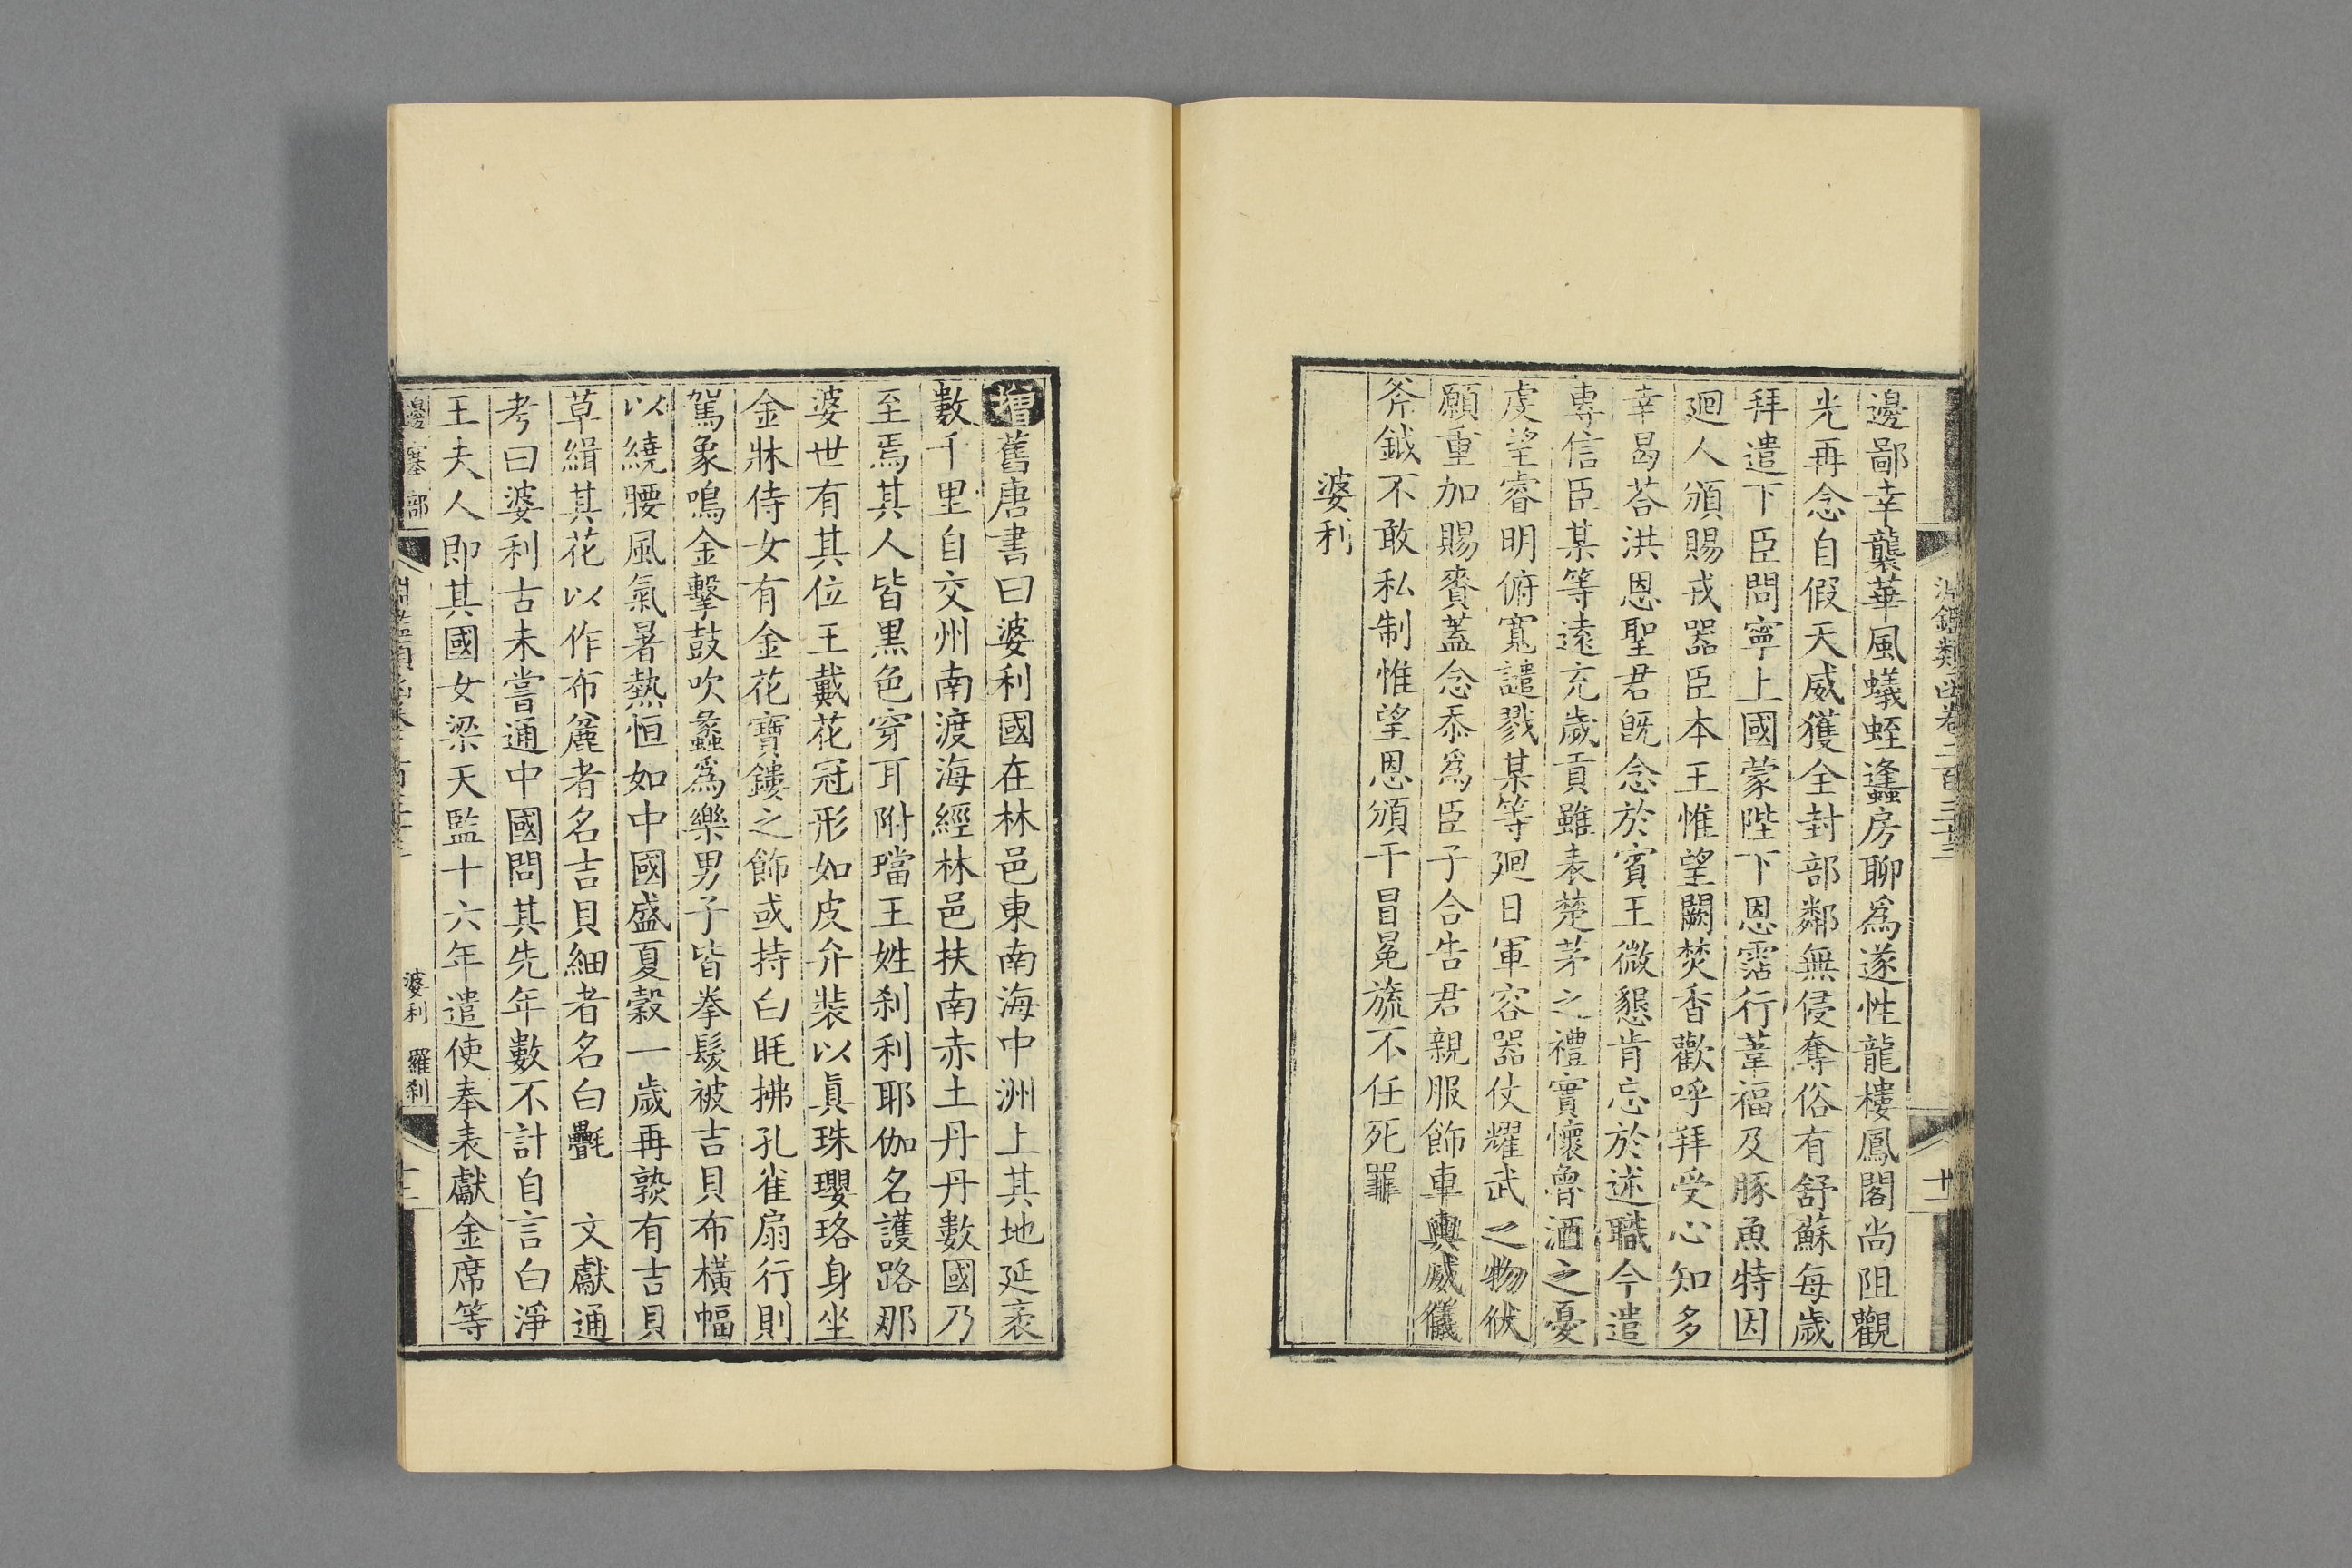 淵鑑類函卷二百三十三
十一
邊鄙幸襲華風蟻蛭逢蠭房聊爲遂性龍樓鳳閣尚阻觀
光再念自假天威獲全封部鄰無侵奪俗有舒蘇每歲
拜遣下臣問寧上國蒙陛下恩霑行葦福及豚魚特因
廻人頒賜戎器臣本王惟望闕焚香歡呼拜受心知多
幸曷荅洪恩聖君旣念於賓王微懇肯忘於述職今遣
專信臣某等遠充歲貢雖表楚茅之禮實懷魯酒之憂
虔望睿明俯寬譴戮某等廻日軍容器仗耀武之物伏
願重加賜賚蓋念忝爲臣子合告君親服飾車輿威儀
斧鉞不敢私制惟望恩頒干冒冕旒不任死罪
婆利
增舊唐書曰婆利國在林邑東南海中洲上其地延袤
數千里自交州南渡海經林邑扶南赤土丹丹數國乃
至焉其人皆黑色穿耳附璫王姓刹利耶伽名護路那
婆世有其位王戴花冠形如皮弁裝以眞珠瓔珞身坐
金牀侍女有金花寶鏤之飾或持白毦拂孔雀扇行則
駕象鳴金擊鼓吹蠡爲樂男子皆拳髮被吉貝布橫幅
以繞腰風氣暑熱恒如中國盛夏穀一歲再熟有吉貝
草緝其花以作布麄者名吉貝細者名白氎 文獻通
考曰婆利古未嘗通中國問其先年數不計自言白淨
王夫人即其國女梁天監十六年遣使奉表獻金席等
邊塞部
婆利 羅刹